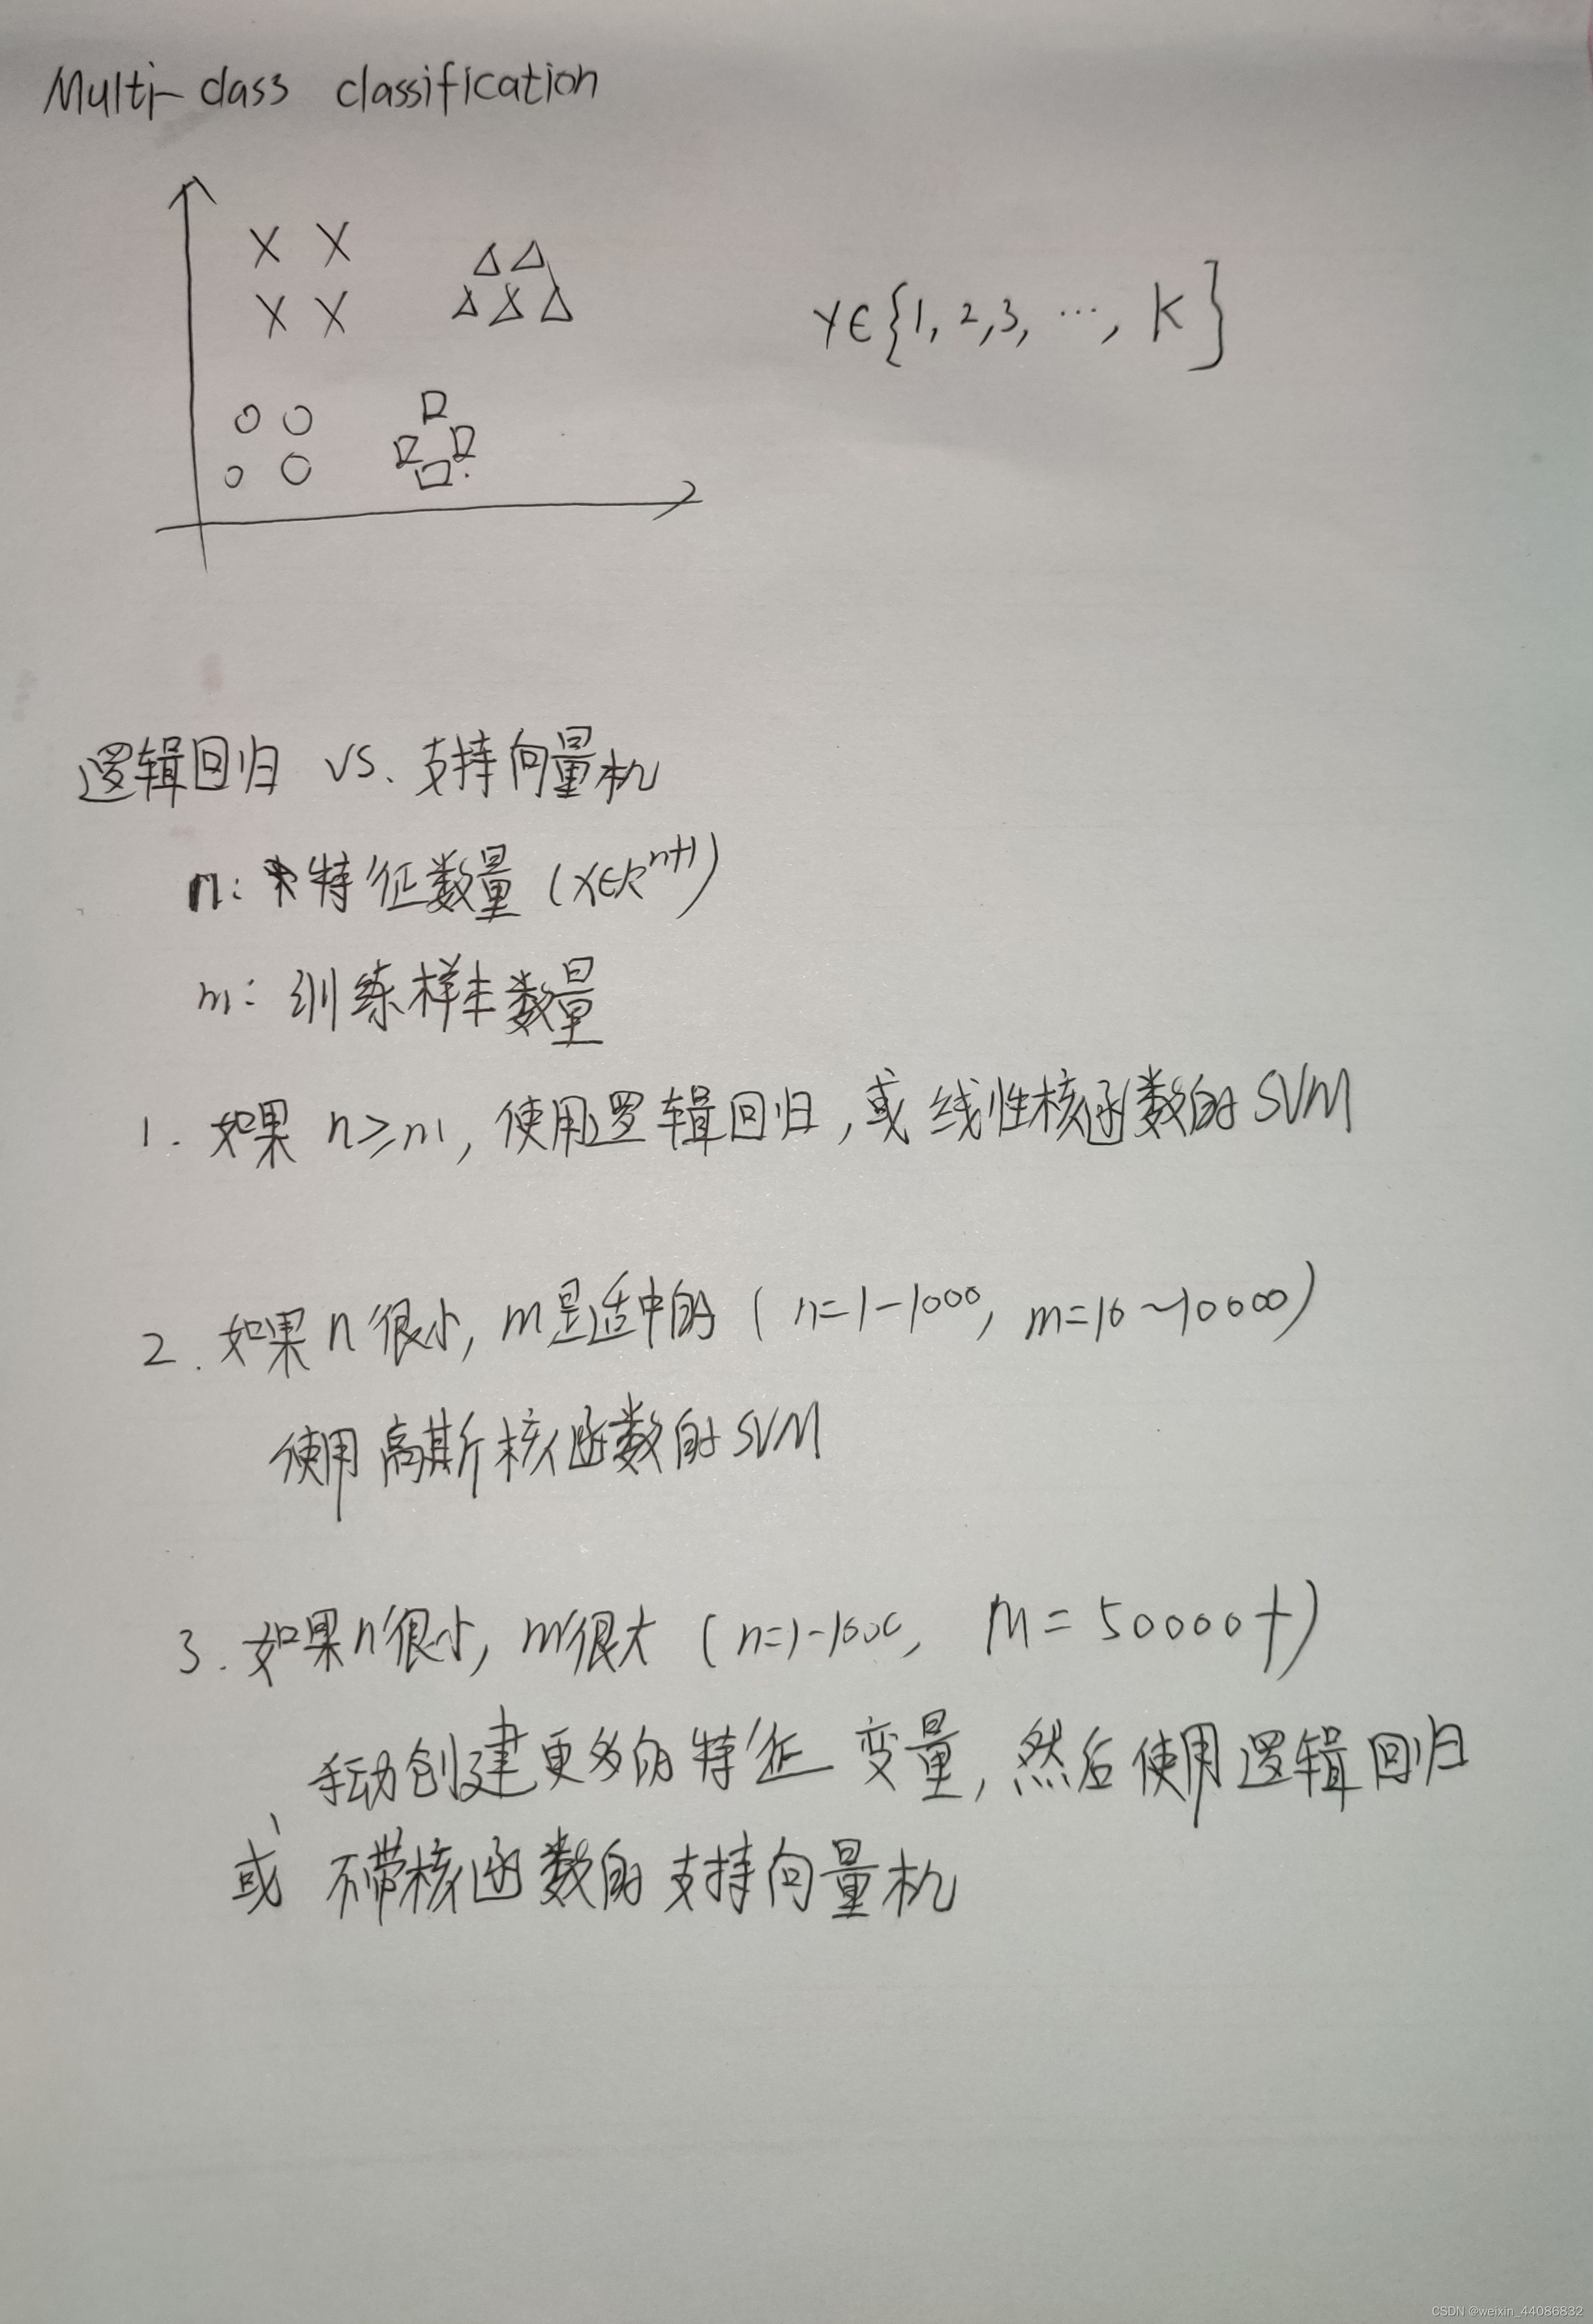 Multi-class classification
y∈{1, 2, 3, ..., K}
逻辑回归 VS. 支持向量机
n: 特征数量 (x∈R^{n+1})
m: 训练样本数量
1. 如果 n≥m, 使用逻辑回归, 或 线性核函数的 SVM
2. 如果 n 很小, m 是适中的 ( n=1-1000, m=10~10000)
使用 高斯核函数的 SVM
3. 如果 n 很小, m 很大 ( n=1-1000, m=50000+)
手动创建更多的特征 变量, 然后使用逻辑回归
或 不带核函数的 支持向量机
CSDN @weixin_44086832